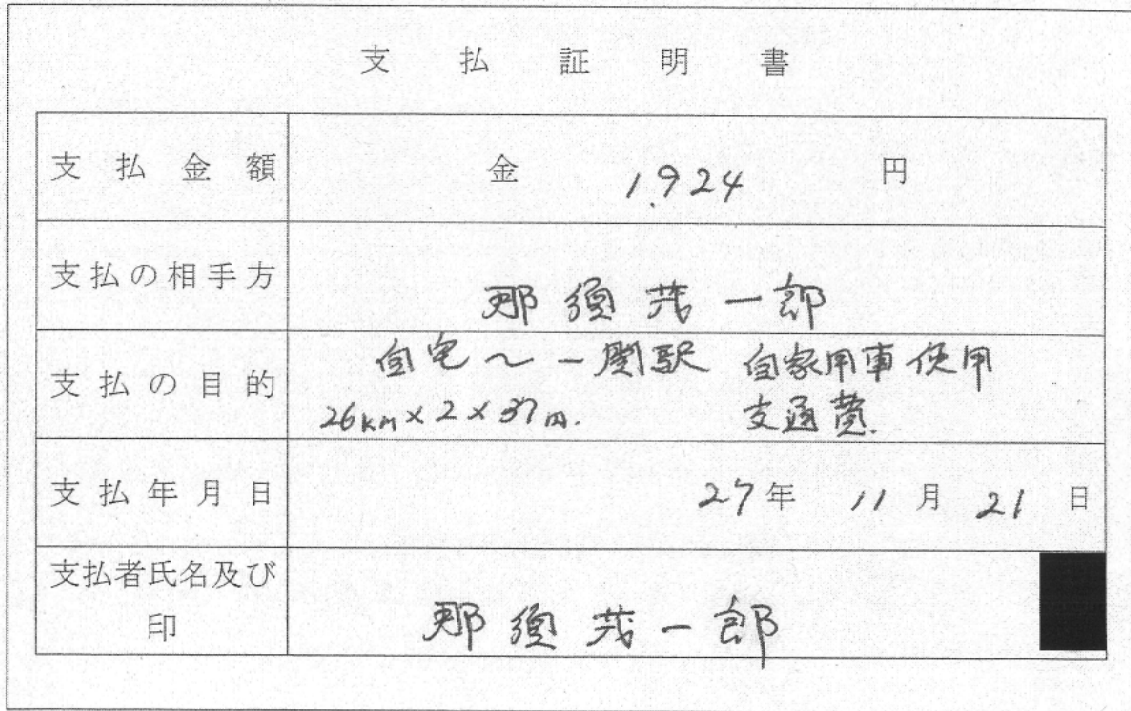 支払証明書
支払金額 金 1,924 円
支払の相手方 那須茂一郎
支払の目的 自宅〜一関駅 自家用車使用
26km×2×37円. 交通費.
支払年月日 27年 11月 21日
支払者氏名及び
印 那須茂一郎